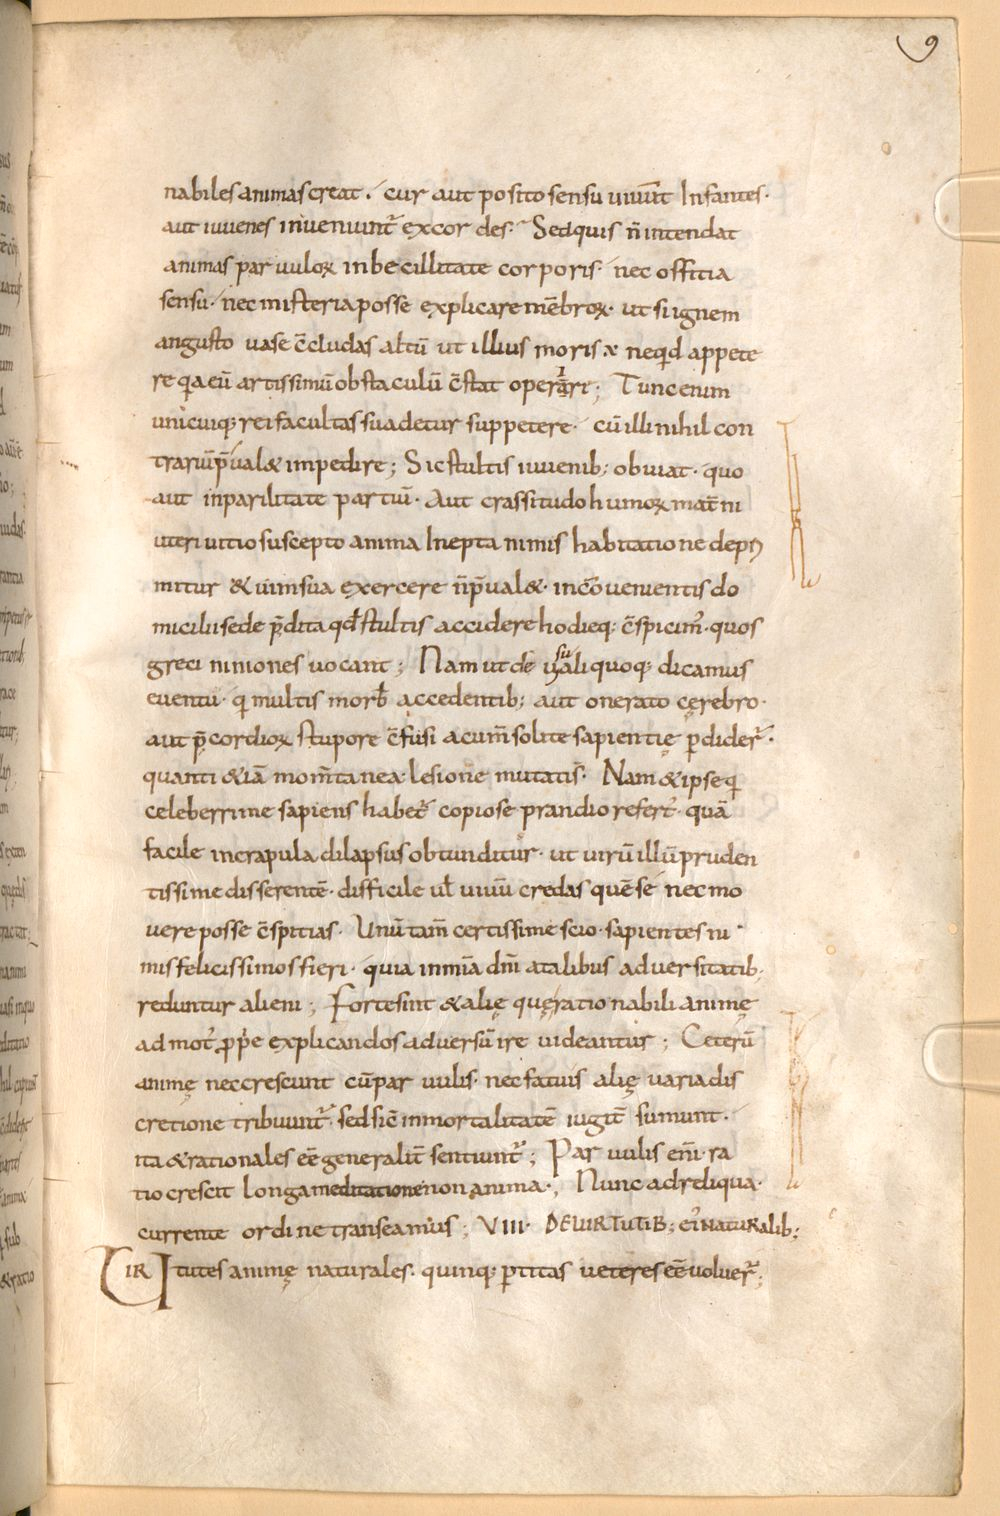 9
nabiles animas creat. cur aut posito sensu uiuunt̄ Infantes.
aut iuuenes inueniunt᷑ excordes. Sed quis n̄ intendat
animas paruuloꝝ inbecillitate corporis. nec offitia
sensu. nec misteria posse explicare mēbroꝝ. ut si ignem
angusto uase c̄cludas altū ut illius moris ÷ neq;d appete
re q̣a eū artissimū obstaculū c̄stat operari; Tunc enim
unicuiq; rei facultas sua detur suppetere. cū illi nihil con
trariū p̄ual& impedire; Sic stultis iuuenib; obuiat. quo
aut inparilitate partiū. Aut crassitudo humoꝝ mat̄ni
uteri uitio suscepto anima Inepta nimis habitatione depri
mitur & uim sua exercere n̄ p̄ual&. inc̄ouenientis do
micilii sede p̄dita qd̄ stultis accidere hodieq; c̄spicim᷒. quos
greci niniones uocant; Nam ut de usuali quoq; dicamus
euentu. qi multis morb̄ accedentib; aut onerato cęrebro.
aut p̄cordioꝝ stupore c̄fusi acum̄ solite sapientię ꝑdider᷑.
quanti &iā mom̄tanea lesione mutatis. Nam & ipse qi
celeberrime sapiens habet᷑ copiose prandio refert᷑. quā
facile in crapula dilapsus obtunditur. ut uirū illū pruden
tissime disserentē. difficile ul̄ uiuū credas quē se nec mo
uere posse c̄spitias. Unū tam̄ certissime scio. sapientes ni
mis felicissimos fieri. quia in mīa dn̄i a talibus aduersitatib;
redduntur alieni; Fortesint & alię quę rationabili animę
admot᷒ ꝓp̄e explicandos aduersū ire uideantur; Ceterū
animę nec crescunt cū paruulis. nec fatuis alię uaria dis
cretione tribuunt᷑. sed sic̄ inmortalitatē iugit̄ sumunt.
ita & rationales eē generalit̄ sentiunt᷑; Paruulis eni. ra
tio crescit longa meditatione non anima.; Nunc ad reliqua.
currente ordine transeamus; VIII. DE UIRTUTIB; ei᷒ NATURalib;
UIRtutes animę naturales. quinq; ꝑtitas ueteres eē uoluer᷑;